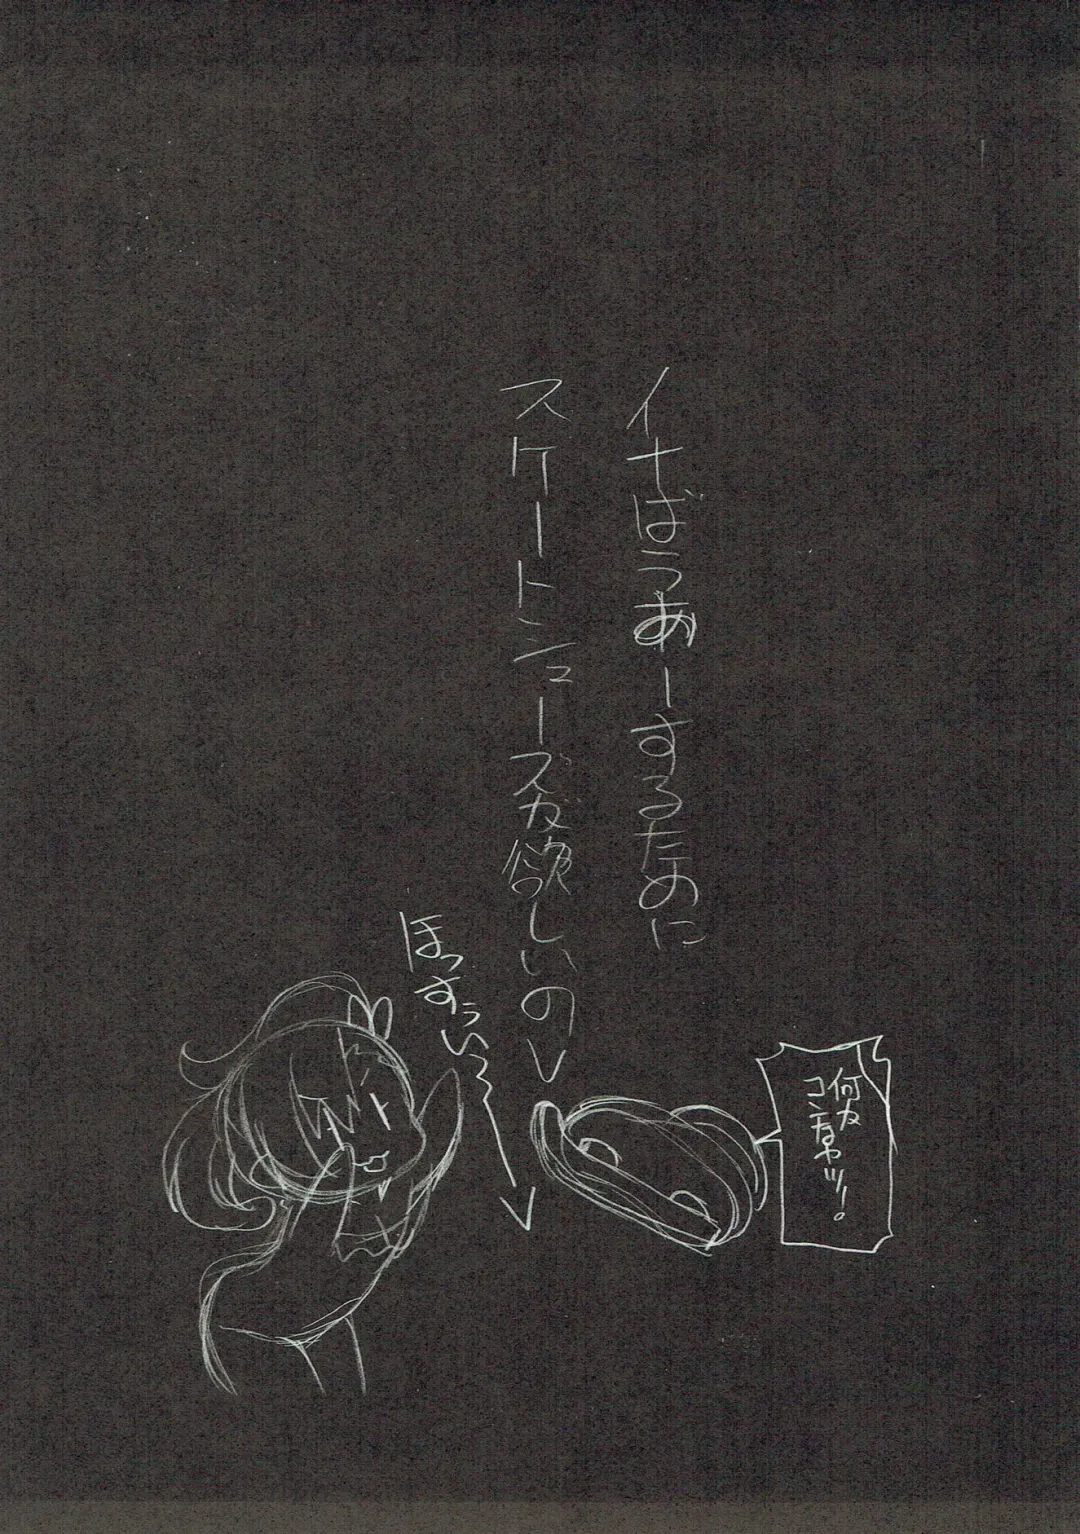 イナばうあーするために
スケートシューズが欲しいの
ほっすぅぃ〜
何かコンなヤツ!。